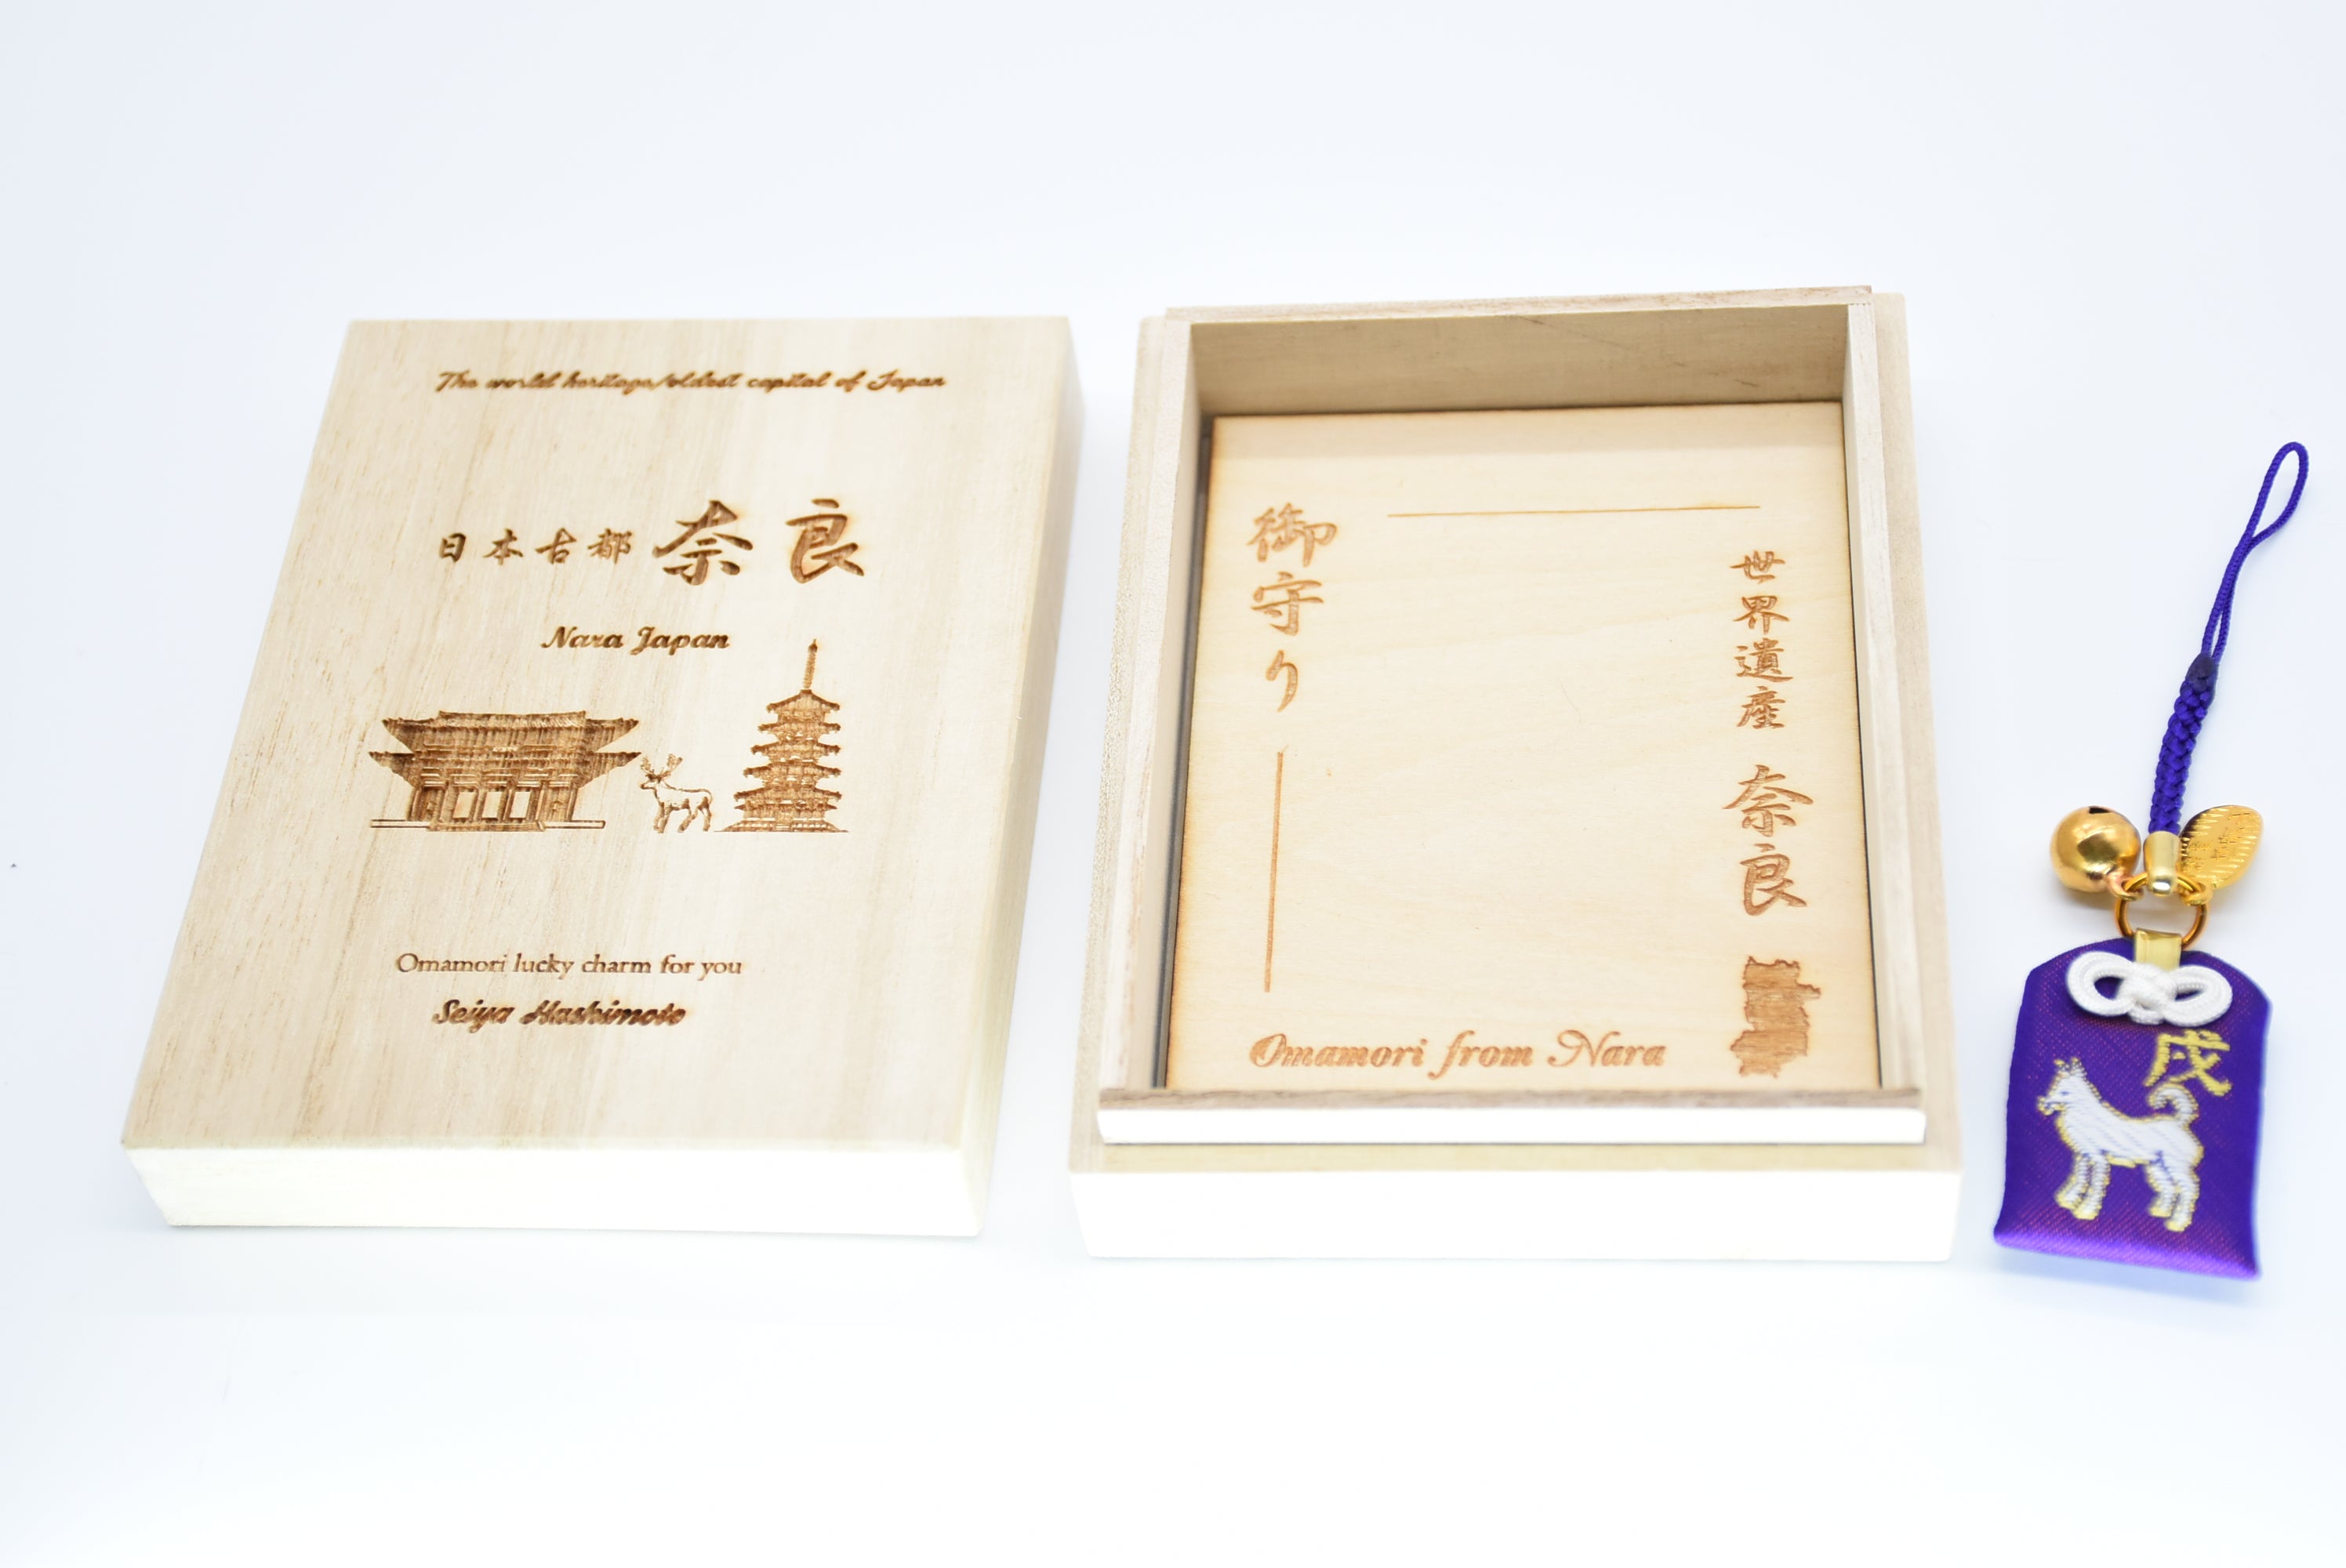 The world heritage/oldest capital of Japan
日本古都 奈良
Nara Japan
Omamori lucky charm for you
Seiya Hashimoto
世界遺産 奈良
御守り
Omamori from Nara
戌